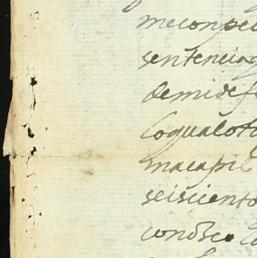 meconpe
sentencia
demi def
loqualot
macapil
seisciento
conosco